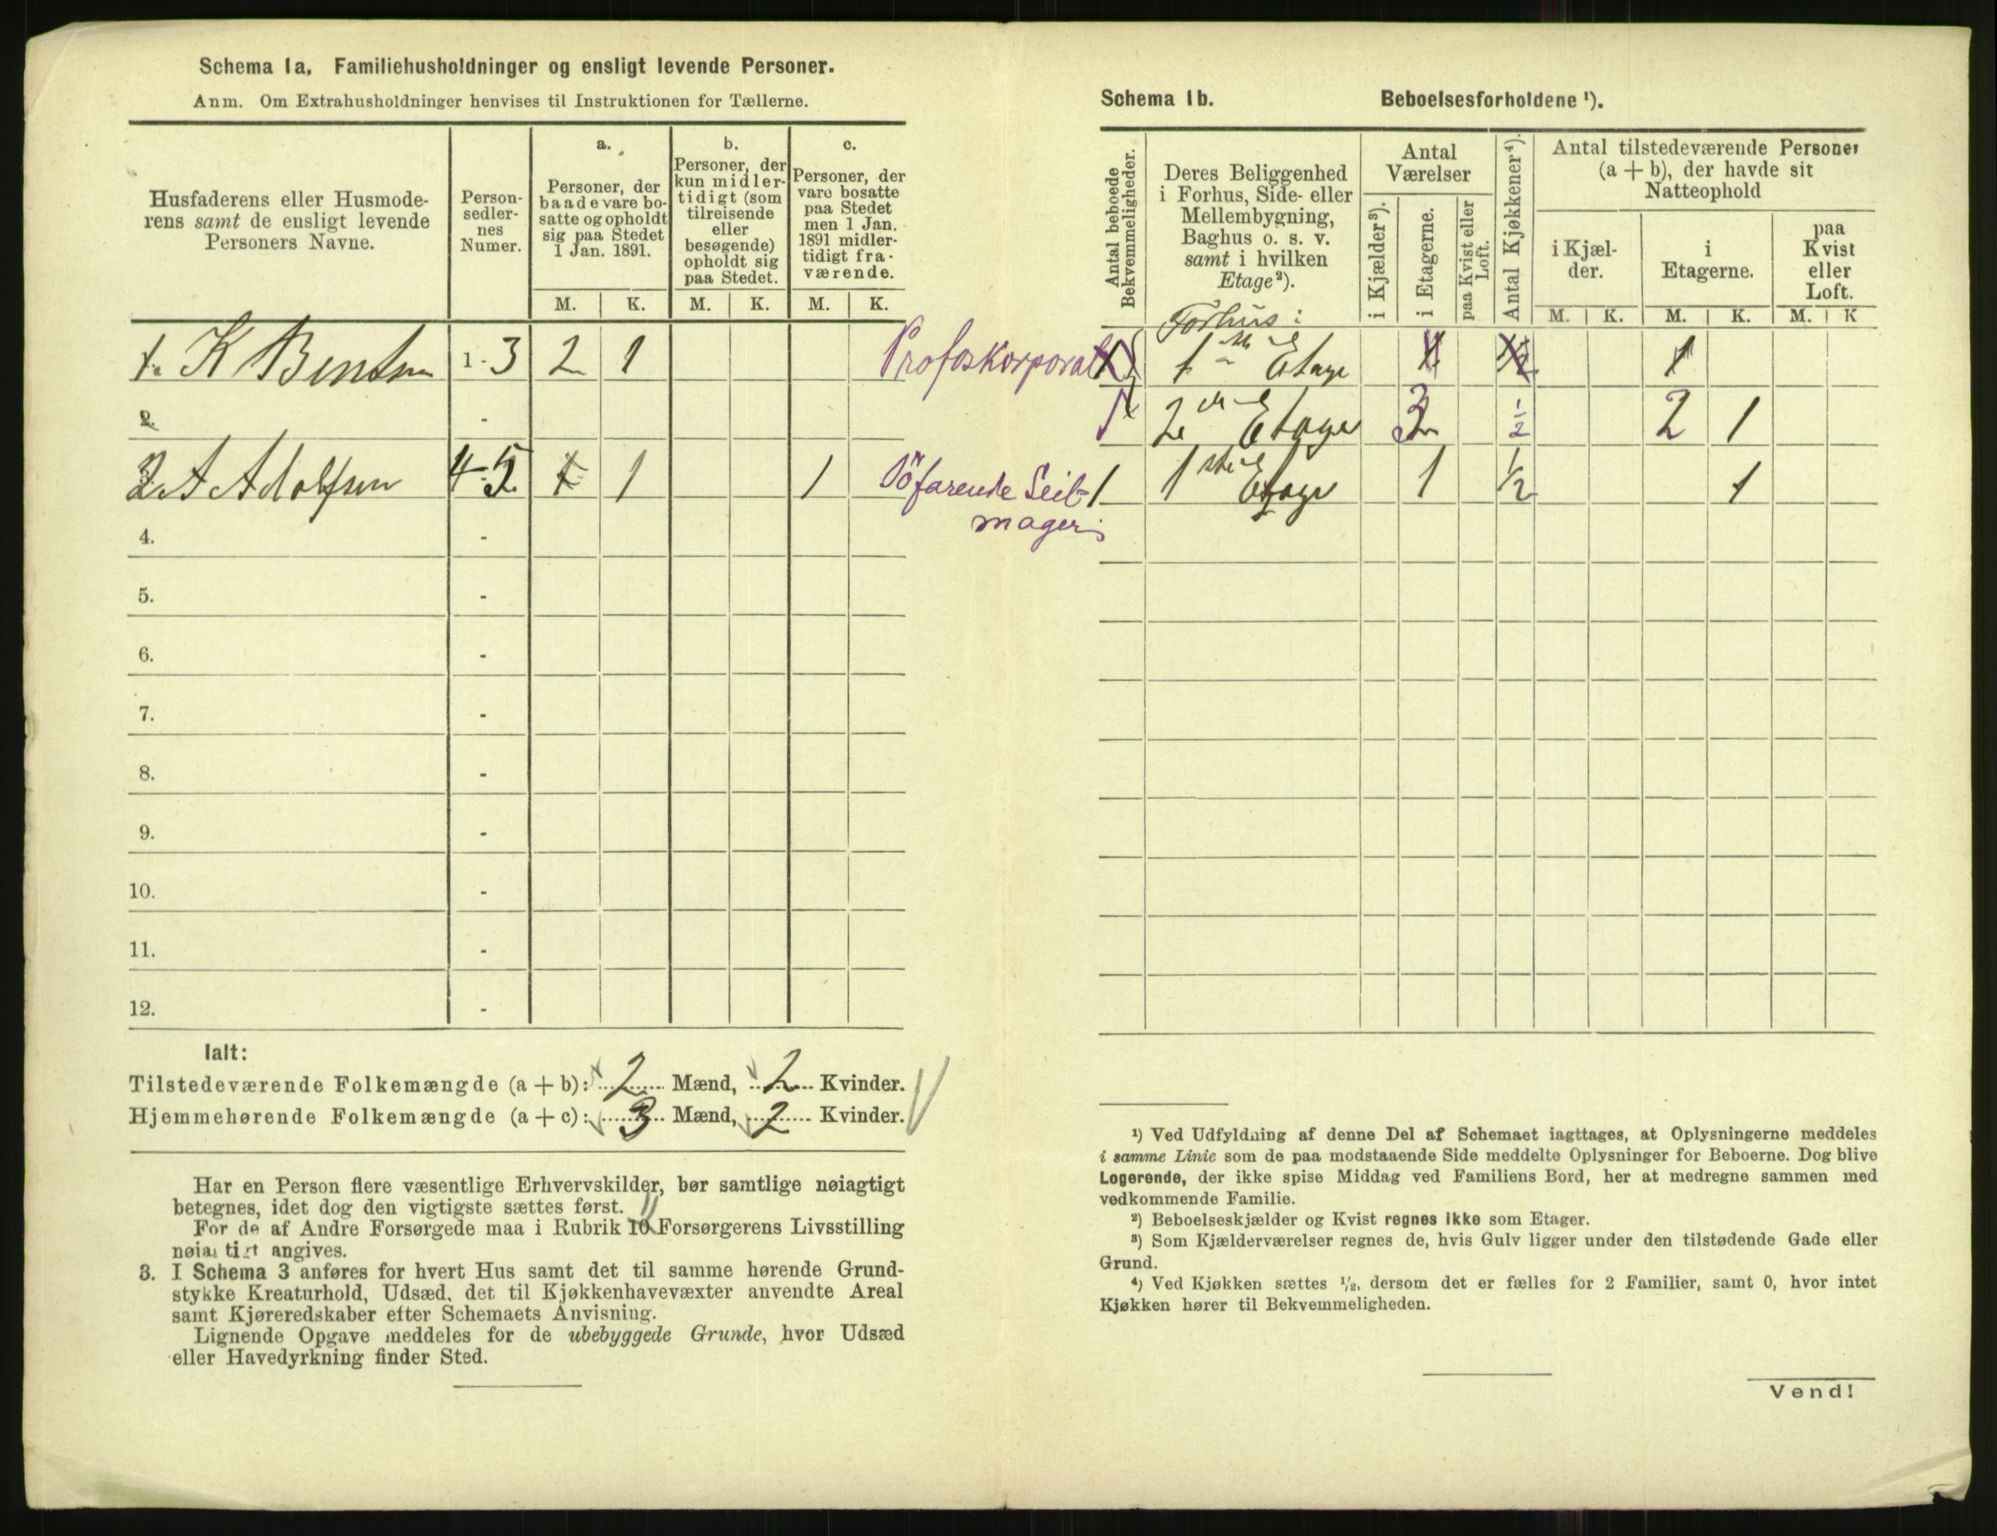 Schema 1a. Familiehusholdninger og ensligt levende Personer.
Anm. Om Extrahusholdninger henvises til Instruktionen for Tællerne.
Husfaderens eller Husmode-
rens samt de ensligt levende
Personers Navne.
Person-
sedler-
nes
Numer.
a.
Personer, der
baade vare bo-
satte og opholdt
sig paa Stedet
1 Jan. 1891.
b.
Personer, der
kun midler-
tidigt (som
tilreisende
eller
besøgende)
opholdt sig
paa Stedet.
c.
Personer, der
vare bosatte
paa Stedet
men 1 Jan.
1891 midler-
tidigt fra-
værende.
M. K. M. K. M. K.
1. K Bentsen 1-3 2 1 Profoskorporal
2. -
2. A Adolfsen 4-5 1 1 1 Söfarende Seil-
mager
4. -
5. -
6. -
7. -
8. -
9. -
10. -
11. -
12. -
Ialt:
Tilstedeværende Folkemængde (a + b): 2 Mænd, 2 Kvinder.
Hjemmehørende Folkemængde (a + c): 3 Mænd, 2 Kvinder.
Har en Person flere væsentlige Erhvervskilder, bør samtlige nøiagtigt
betegnes, idet dog den vigtigste sættes først.
For de af Andre Forsørgede maa i Rubrik 10 11 Forsørgerens Livsstilling
nøiagtigt angives.
3. I Schema 3 anføres for hvert Hus samt det til samme hørende Grund-
stykke Kreaturhold, Udsæd, det til Kjøkkenhavevæxter anvendte Areal
samt Kjøreredskaber efter Schemaets Anvisning.
Lignende Opgave meddeles for de ubebyggede Grunde, hvor Udsæd
eller Havedyrkning finder Sted.
Schema 1b. Beboelsesforholdene ¹).
Antal beboede
Bekvemmeligheder.
Deres Beliggenhed
i Forhus, Side- eller
Mellembygning,
Baghus o. s. v.
samt i hvilken
Etage²).
Antal
Værelser
i Kjælder³).
i Etagerne.
paa Kvist eller
Loft.
Antal Kjøkkener⁴).
Antal tilstedeværende Personer
(a + b), der havde sit
Natteophold
i Kjæl-
der.
i
Etagerne.
paa
Kvist
eller
Loft.
M. K. M. K. M. K
Forhus:
1 1ste Etage 1 1/2 1
1 2den Etage 3 1/2 2 1
1 1ste Etage 1 1/2 1
¹) Ved Udfyldning af denne Del af Schemaet iagttages, at Oplysningerne meddeles
i samme Linie som de paa modstaaende Side meddelte Oplysninger for Beboerne. Dog blive
Logerende, der ikke spise Middag ved Familiens Bord, her at medregne sammen med
vedkommende Familie.
²) Beboelseskjælder og Kvist regnes ikke som Etager.
³) Som Kjælderværelser regnes de, hvis Gulv ligger under den tilstødende Gade eller
Grund.
⁴) Ved Kjøkken sættes ¹/₂, dersom det er fælles for 2 Familier, samt 0, hvor intet
Kjøkken hører til Bekvemmeligheden.
Vend!